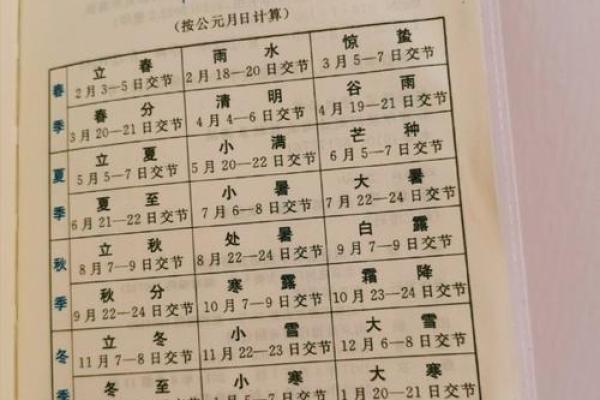 （按公元月日计算）
春季
立春 雨水 惊蛰
2月3—5日交节 2月18—20日交节 3月5—7日交节
春分 清明 谷雨
3月20—21日交节 4月4—6日交节 4月19—21日交节
夏季
立夏 小满 芒种
5月5—7日交节 5月20—22日交节 6月5—7日交节
夏至 小暑 大暑
6月21—22日交节 7月6—8日交节 7月22—24日交节
秋季
立秋 处暑 白露
8月7—9日交节 8月22—24日交节 9月7—9日交节
秋分 寒露 霜降
9月22—24日交节 10月7—9日交节 10月23—24日交节
冬季
立冬 小雪 大雪
11月7—8日交节 11月22—23日交节 12月6—8日交节
冬至 小寒 大寒
1月5—7日交节 1月20—21日交节